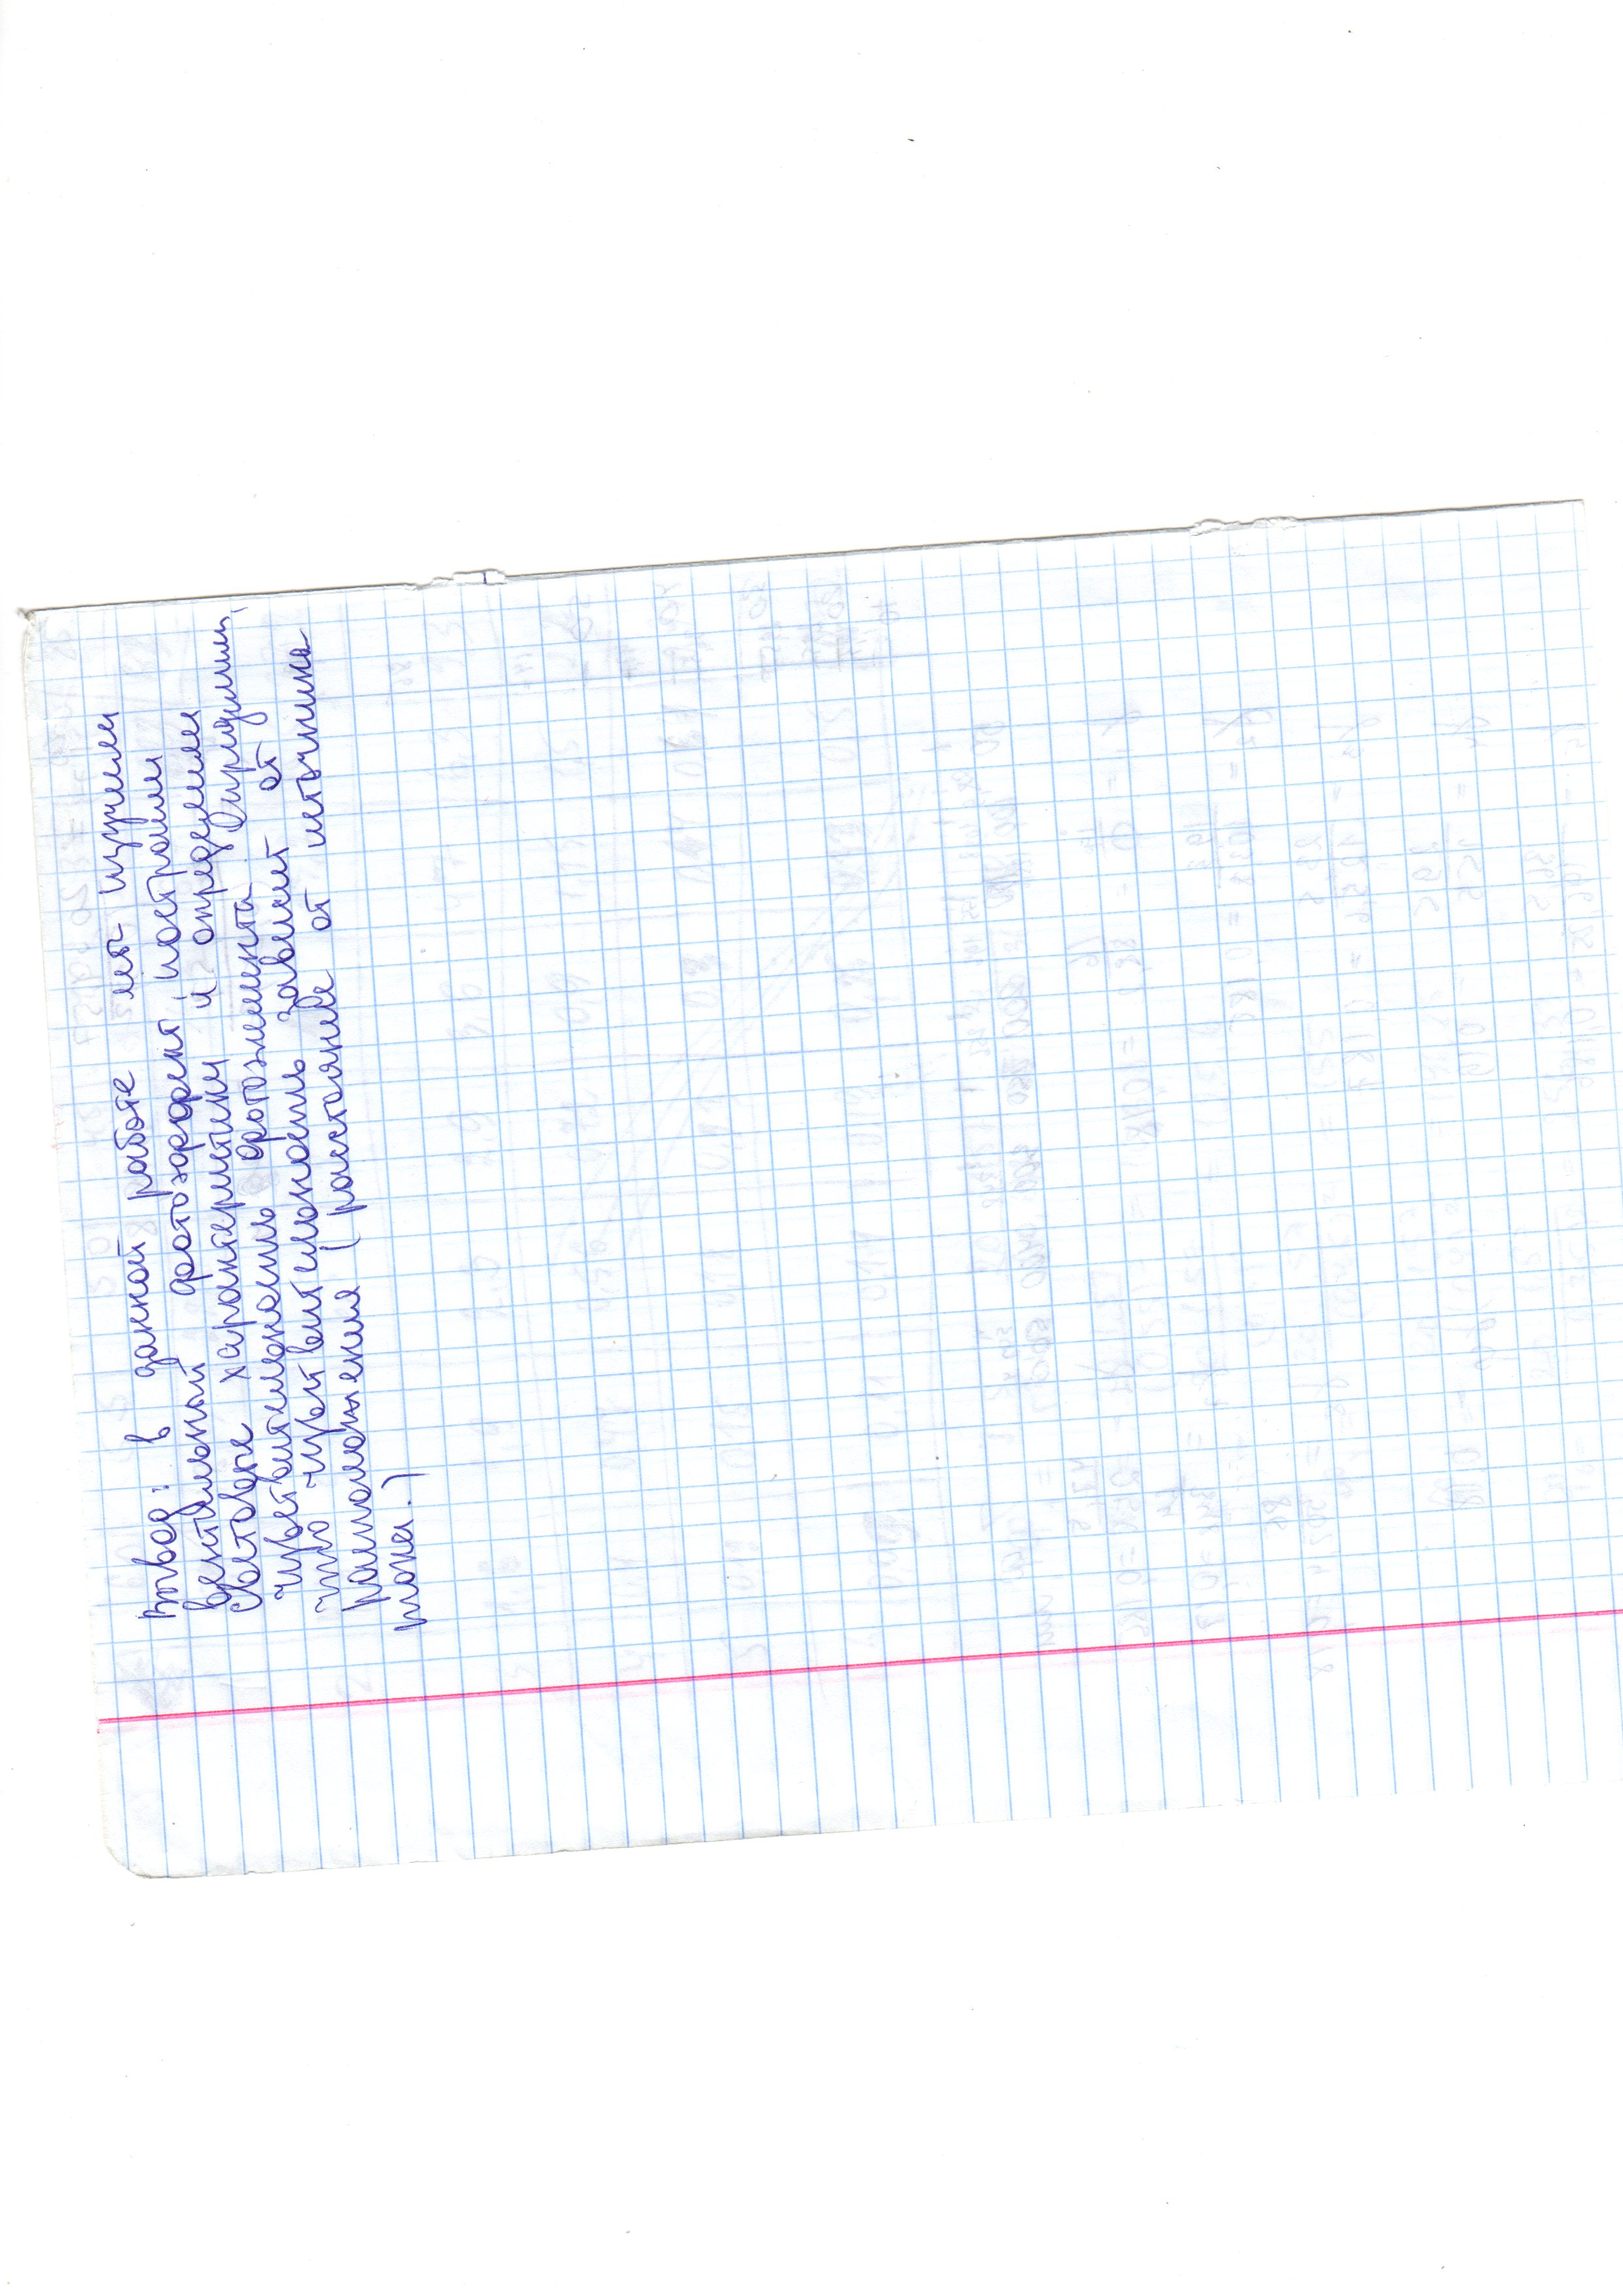 Вывод: в данной работе мы изучили
вентильный фотоэффект, построили
световые характеристики и определили
чувствительность фотоэлемента. Определили,
что чувствительность зависит от
расположения (расстояние от источника
тока.)